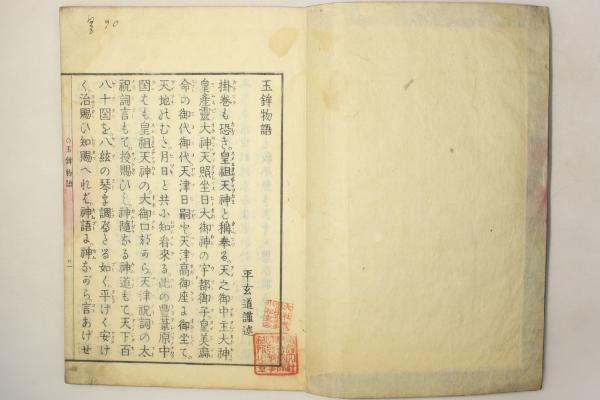 玉鉾物語
平玄道謹述
掛巻も恐き皇祖天神と稱奉る。天之御中主大神
皇産靈大神天照坐日大御神の宇都御子皇美麻
命の御代御代天津日嗣や天津高御座よ御坐て。
天地のむと月日と共小知看來る。此の豊葦原中
國むも皇祖天神の大御口於ら天津祝詞の太
祝詞言もて授賜ひし神隨なる神道もて天下百
八十國を八絃の琴ま調るとる如く平けく安け
く治賜ひ知賜へれば神語よ神ながら言あげせ
○玉鉾物語
一
90